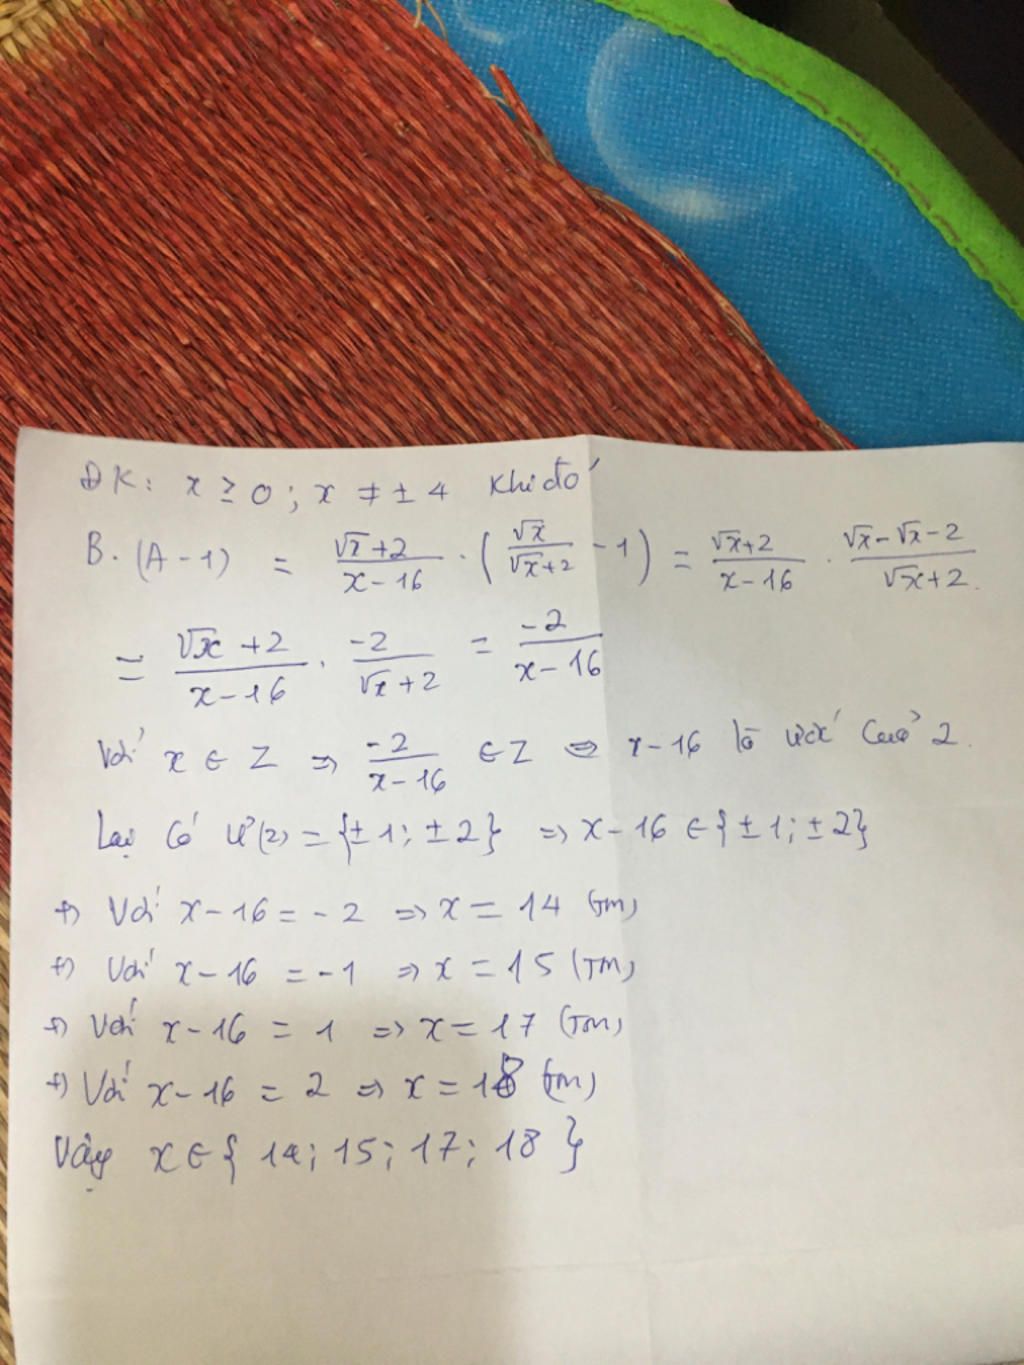 ĐK: x ≥ 0; x ≠ ± 4 Khi đó
B. (A - 1) = (√x + 2)/(x - 16) . (√x/(√x + 2) - 1) = (√x + 2)/(x - 16) . (√x - √x - 2)/(√x + 2).
= (√x + 2)/(x - 16) . -2/(√x + 2) = -2/(x - 16)
Với x ∈ Z ⇒ -2/(x - 16) ∈ Z ⇔ x - 16 là ước của 2.
Lại có Ư(2) = {± 1; ± 2} ⇒ x - 16 ∈ {± 1; ± 2}
+) Với x - 16 = - 2 ⇒ x = 14 (TM)
+) Với x - 16 = - 1 ⇒ x = 15 (TM)
+) Với x - 16 = 1 ⇒ x = 17 (TM)
+) Với x - 16 = 2 ⇒ x = 18 (TM)
Vậy x ∈ { 14; 15; 17; 18 }